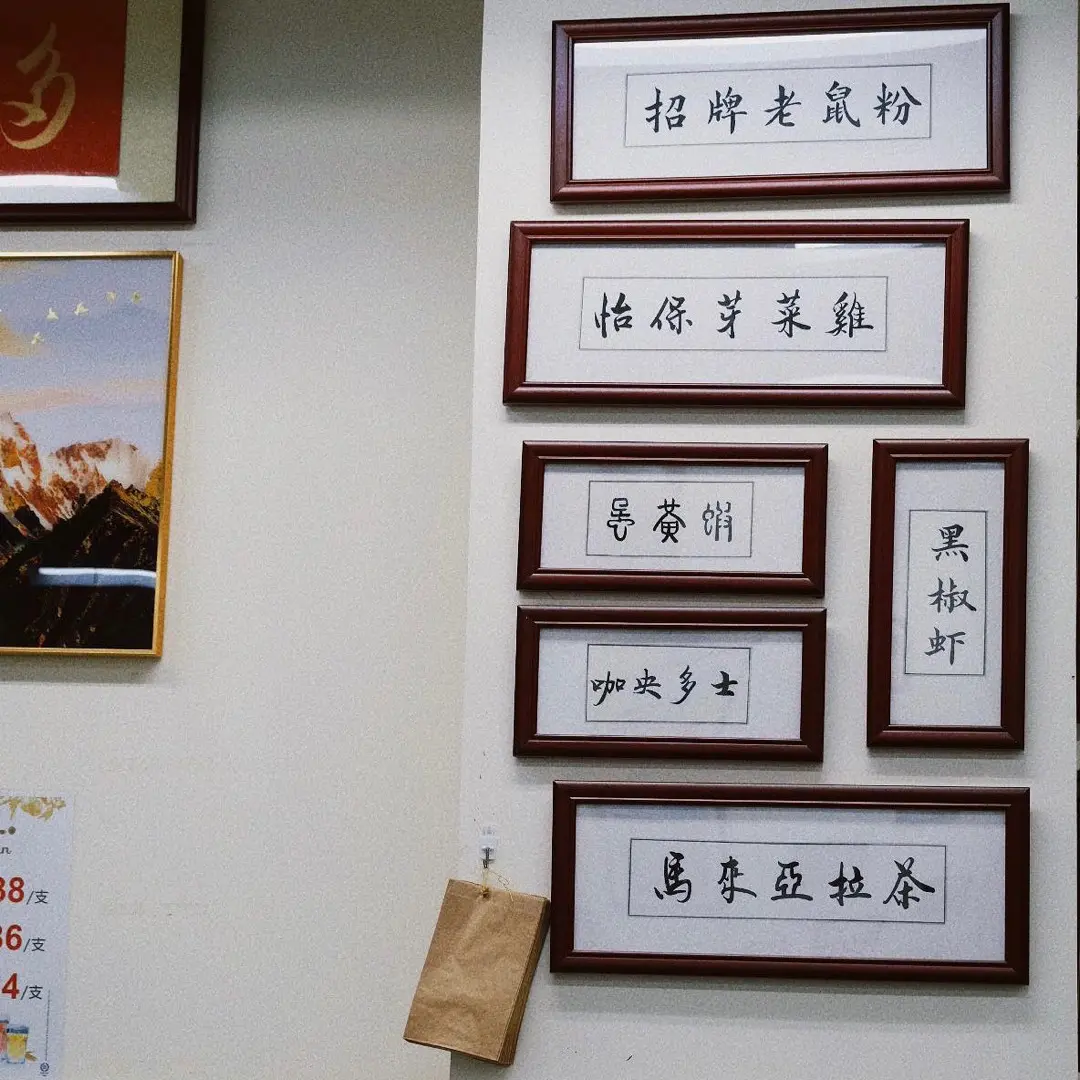 多
招牌老鼠粉
怡保芽菜雞
黃蝦
黑椒虾
咖央多士
馬來亞拉茶
38/支
36/支
4/支